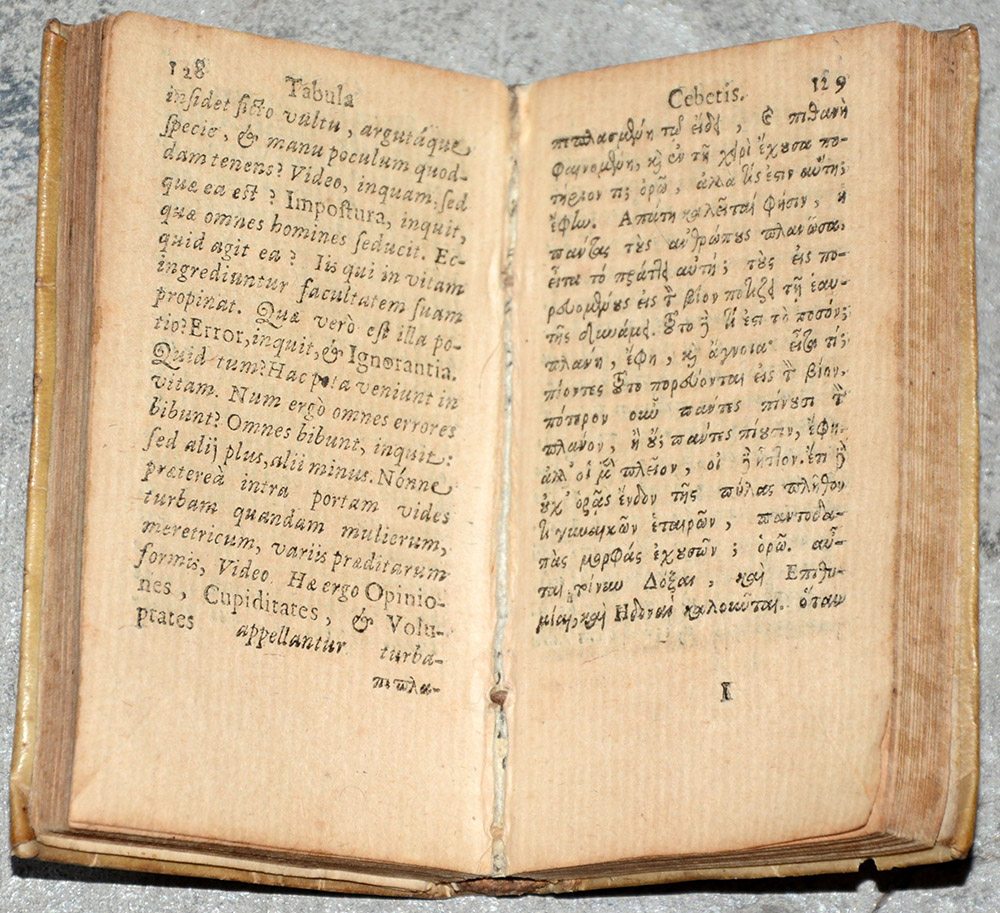 128
Tabula
inſidet ficto vultu, argutáque
ſpecie, & manu poculum quod-
dam tenens? Video, inquam; ſed
quæ ea eſt ? Impoſtura, inquit,
quæ omnes homines ſeducit. Ec-
quid agit ea? Iis qui in vitam
ingrediuntur facultatem ſuam
propinat. Quæ verò eſt illa po-
tio? Error, inquit, & Ignorantia.
Quid tum? Hac pota veniunt in
vitam. Num ergò omnes errores
bibunt? Omnes bibunt, inquit:
ſed alij plus, alii minus. Nónne
prætereà intra portam vides
turbam quandam mulierum,
meretricum, variis præditarum
formis, Video. Hæ ergo Opinio-
nes, Cupiditates, & Volu-
ptates appellantur turba-
πεπλα-
Cebetis.
129
πεπλασμένη τῷ εἴδει, καὶ πιθανὴ
φαινομένη, καὶ ἐν τῇ χειρὶ ἔχουσα πο-
τήριον τι; ὁρῶ, ἀλλὰ τίς ἐστιν αὕτη;
ἔφην. Απάτη καλεῖται φησίν, ἡ
πάντας τοὺς ἀνθρώπους πλανῶσα.
εἶτα τὸ πράττει αὐτή; τοὺς εἰς πο-
ρευομένους εἰς τὸν βίον ποτίζει τῇ ἑαυ-
τῆς δυνάμει. τοῦτο δὲ τί ἐστι τὸ ποτόν;
πλάνη, ἔφη, καὶ ἄγνοια. εἶτα τί;
πίοντες τοῦτο πορεύονται εἰς τὸν βίον.
πότερον οὖν πάντες πίνουσι τὸν
πλάνον, ἢ οὔ; πάντες πίουσιν, ἔφη.
ἀλλ' οἱ μὲν πλεῖον, οἱ δὲ ἧττον. ἔτι δὲ
οὐχ' ὁρᾷς ἔνδον τῆς πύλας πλῆθος
τι γυναικῶν ἑταιρῶν, παντοδα-
πὰς μορφάς ἐχουσῶν; ὁρῶ. αὗ-
ται τοίνυν Δόξαι, καὶ Επιθυ-
μίαι, καὶ Ηδοναὶ καλοῦνται. ὅταν
I